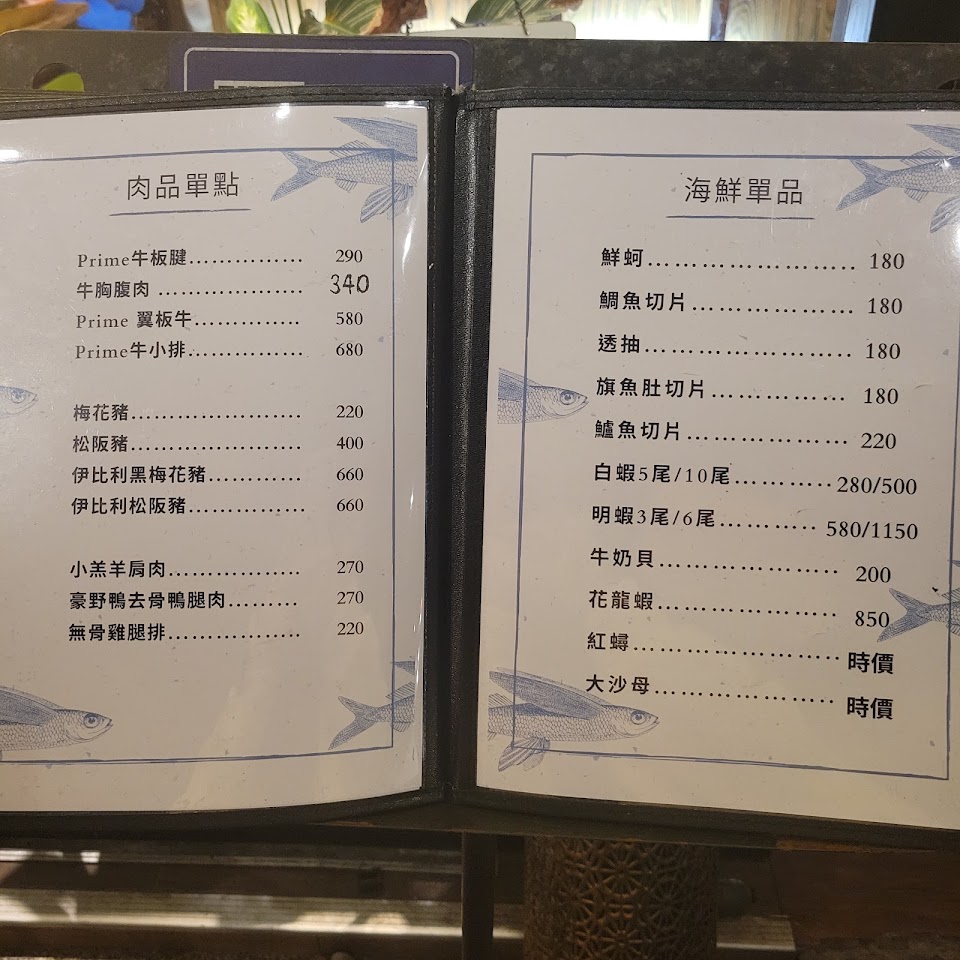 肉品單點
Prime牛板腱……………… 290
牛胸腹肉 ………………… 340
Prime 翼板牛…………… 580
Prime牛小排…………… 680
梅花豬…………………… 220
松阪豬…………………… 400
伊比利黑梅花豬………… 660
伊比利松阪豬…………… 660
小羔羊肩肉……………… 270
豪野鴨去骨鴨腿肉……… 270
無骨雞腿排……………… 220
海鮮單品
鮮蚵……………………… 180
鯛魚切片………………… 180
透抽……………………… 180
旗魚肚切片……………… 180
鱸魚切片………………… 220
白蝦5尾/10尾…………280/500
明蝦3尾/6尾………… 580/1150
牛奶貝…………………… 200
花龍蝦…………………… 850
紅蟳……………………… 時價
大沙母…………………… 時價